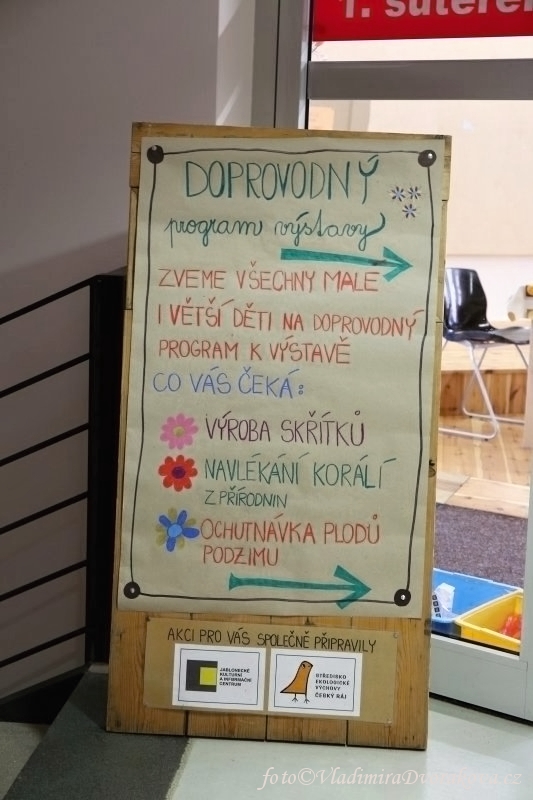 1. suterén
DOPROVODNÝ
program výstavy
ZVEME VŠECHNY MALE
I VĚTŠÍ DĚTI NA DOPROVODNÝ
PROGRAM K VÝSTAVĚ
CO VÁS ČEKÁ:
VÝROBA SKŘÍTKŮ
NAVLÉKÁNÍ KORÁLÍ
Z PŘÍRODNIN
OCHUTNÁVKA PLODŮ
PODZIMU
AKCI PRO VÁS SPOLEČNĚ PŘIPRAVILY
JABLONECKÉ
KULTURNÍ
A INFORMAČNÍ
CENTRUM
STŘEDISKO
EKOLOGICKÉ
VÝCHOVY
ČESKÝ RÁJ